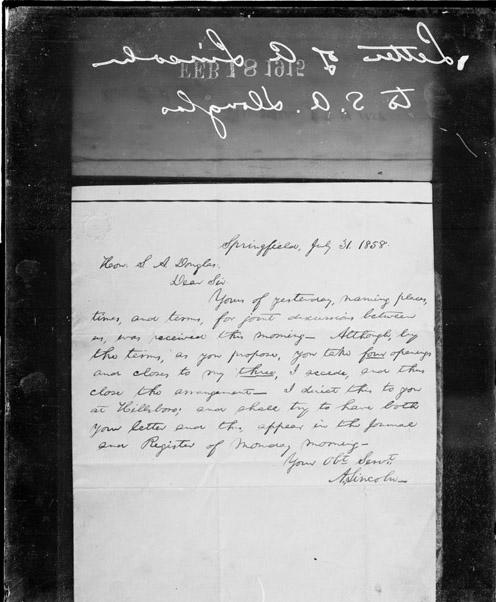 Letter of A Lincoln
FEB 18 1915
to S. A. Douglas
Springfield, July 31. 1858.
Hon. S. A. Douglas.
Dear Sir
Yours of yesterday, naming places,
times, and terms, for joint discussions between
us, was received this morning— Although, by
the terms, as you propose, you take four openings
and closes to my three, I accede, and thus
close the arrangement— I direct this to you
at Hillsboro; and shall try to have both
your letter and this, appear in the Journal
and Register of Monday morning—
Your Obt. Servt.
A. Lincoln—